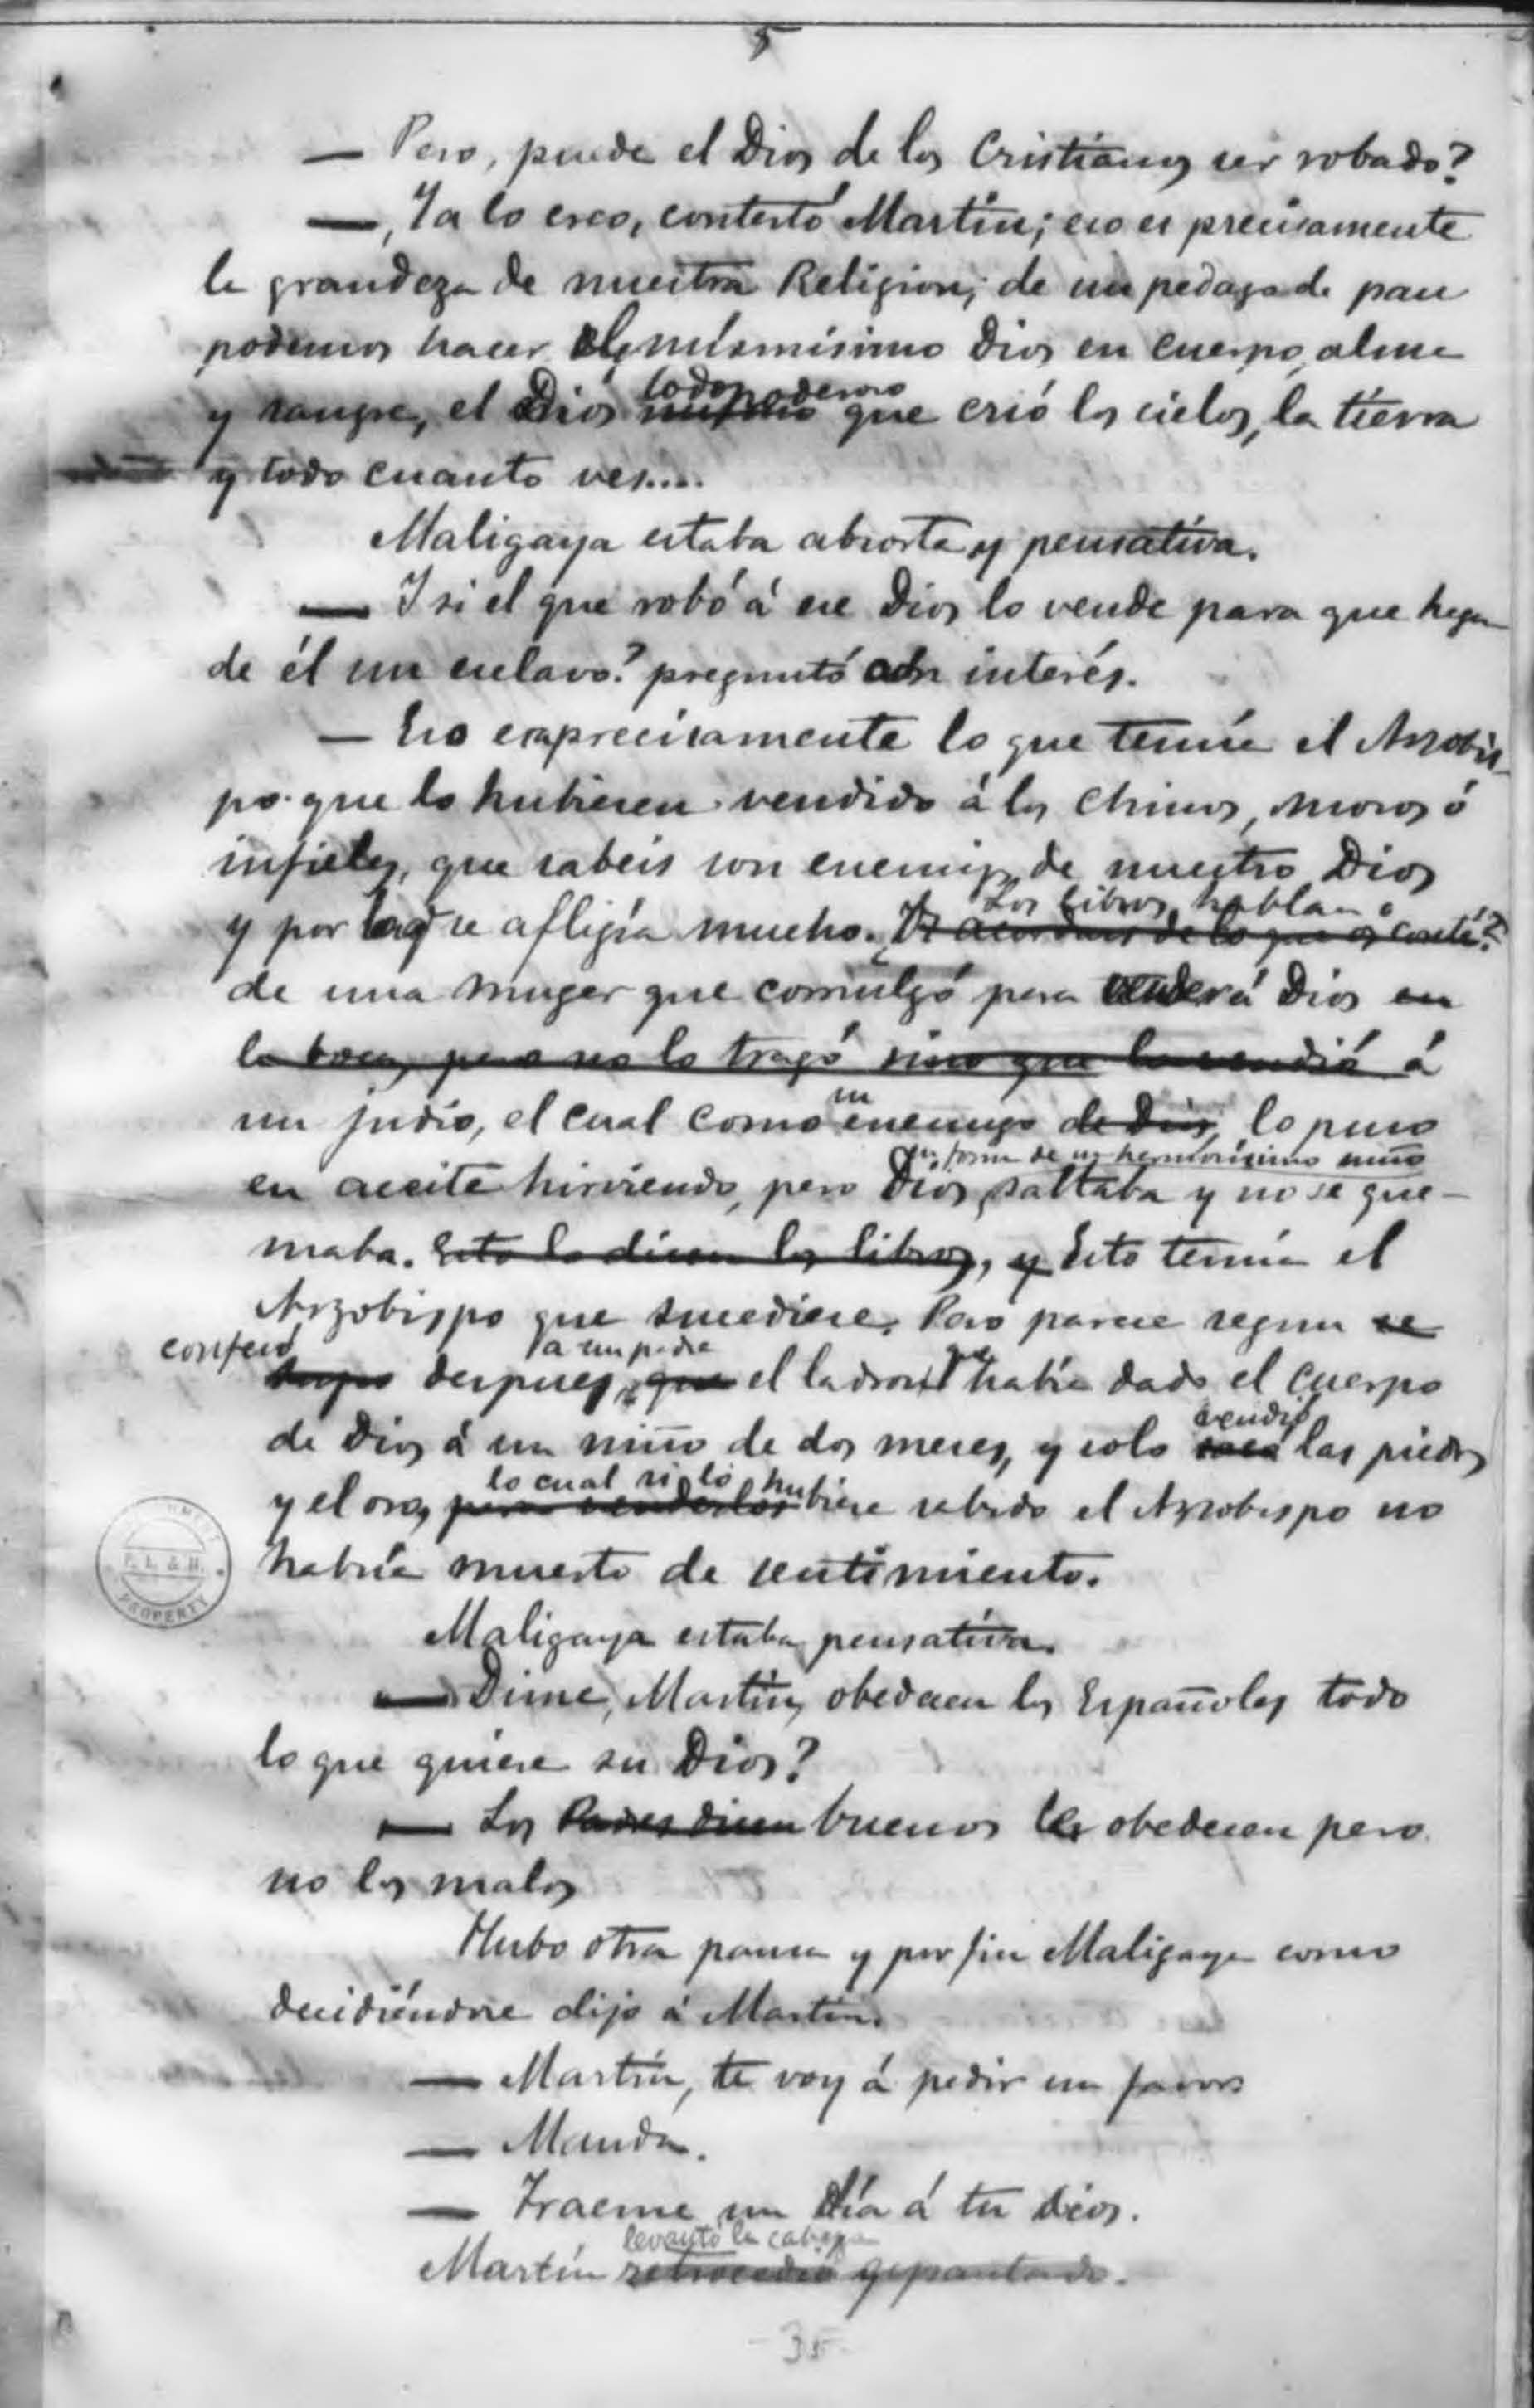 5
— Pero, puede el Dios de los Cristianos ser robado?
—, Ya lo creo, contestó Martin; eso es precisamente
la grandeza de nuestra Religion; de un pedazo de pan
podemos hacer el mismisimo Dios en cuerpo, alma
todopoderoso
y sangre, el Dios mismo que crió los cielos, la tierra
y todo cuanto ves....
Maligaya estaba absorta y pensativa.
— Y si el que robó á ese Dios lo vende para que hagan
de él un esclavo? preguntó con interés.
— Eso era precisamente lo que temía el Arzobis-
po que lo hubiesen vendido á los Chinos, moros ó
infieles, que sabeis son enemigos de nuestro Dios
Los libros hablan
y por se afligía mucho. acordais de lo que os conté?
de una muger que comulgó para vender á Dios en
la boca, pero no lo tragó sino que lo vendió á
un judio, el cual como enemigo de Dios, lo puso
en forma de un hermosisimo niño
en aceite hirviendo, pero Dios saltaba y no se que-
maba. Esto lo dicen los libros, y Esto temía el
Arzobispo que sucediese. Pero parece segun se
confesó a un padre
supo despues, que el ladron que había dado el cuerpo
vendió
de Dios á un niño de dos meses, y solo sacó las piedras
lo cual si lo hu
y el oro, para venderlos biese sabido el Arzobispo no
habría muerto de sentimiento.
P. L. & M.
PROPERTY
Maligaya estaba pensativa.
— Dime, Martin, obedecen los Españoles todo
lo que quiere su Dios?
— Los Padres dicen buenos le obedecen pero
no los malos
Hubo otra pausa y por fin Maligaya como
decidiéndose dijo á Martin.
— Martín, te voy á pedir un favor
— Manda.
— Traeme un día á tu Dios.
levantó la cabeza
Martín retrocedió espantado.
35